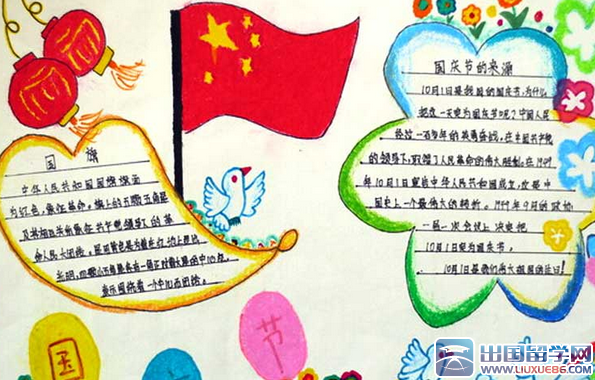 国 旗
中华人民共和国国旗旗面
为红色,象征革命。旗上的五颗五角星
及其相互关系象征共产党领导下的革
命人民大团结。
意示围绕着一个中心而团结。
国庆节的来源
10月1日是我国的国庆节,为什么
把这一天定为国庆节呢?中国人民
经过一百多年的英勇奋战,在中国共产党
的领导下,取得了人民革命的伟大胜利。在1949
年10月1日宣告中华人民共和国成立,这是中
国史上一个最伟大的转折。1949年9月的政协
一届一次会议上决定把
10月1日定为国庆节。
10月1日是我们伟大祖国的生日!
国
节
出国留学网
WWW.LIUXUE86.COM